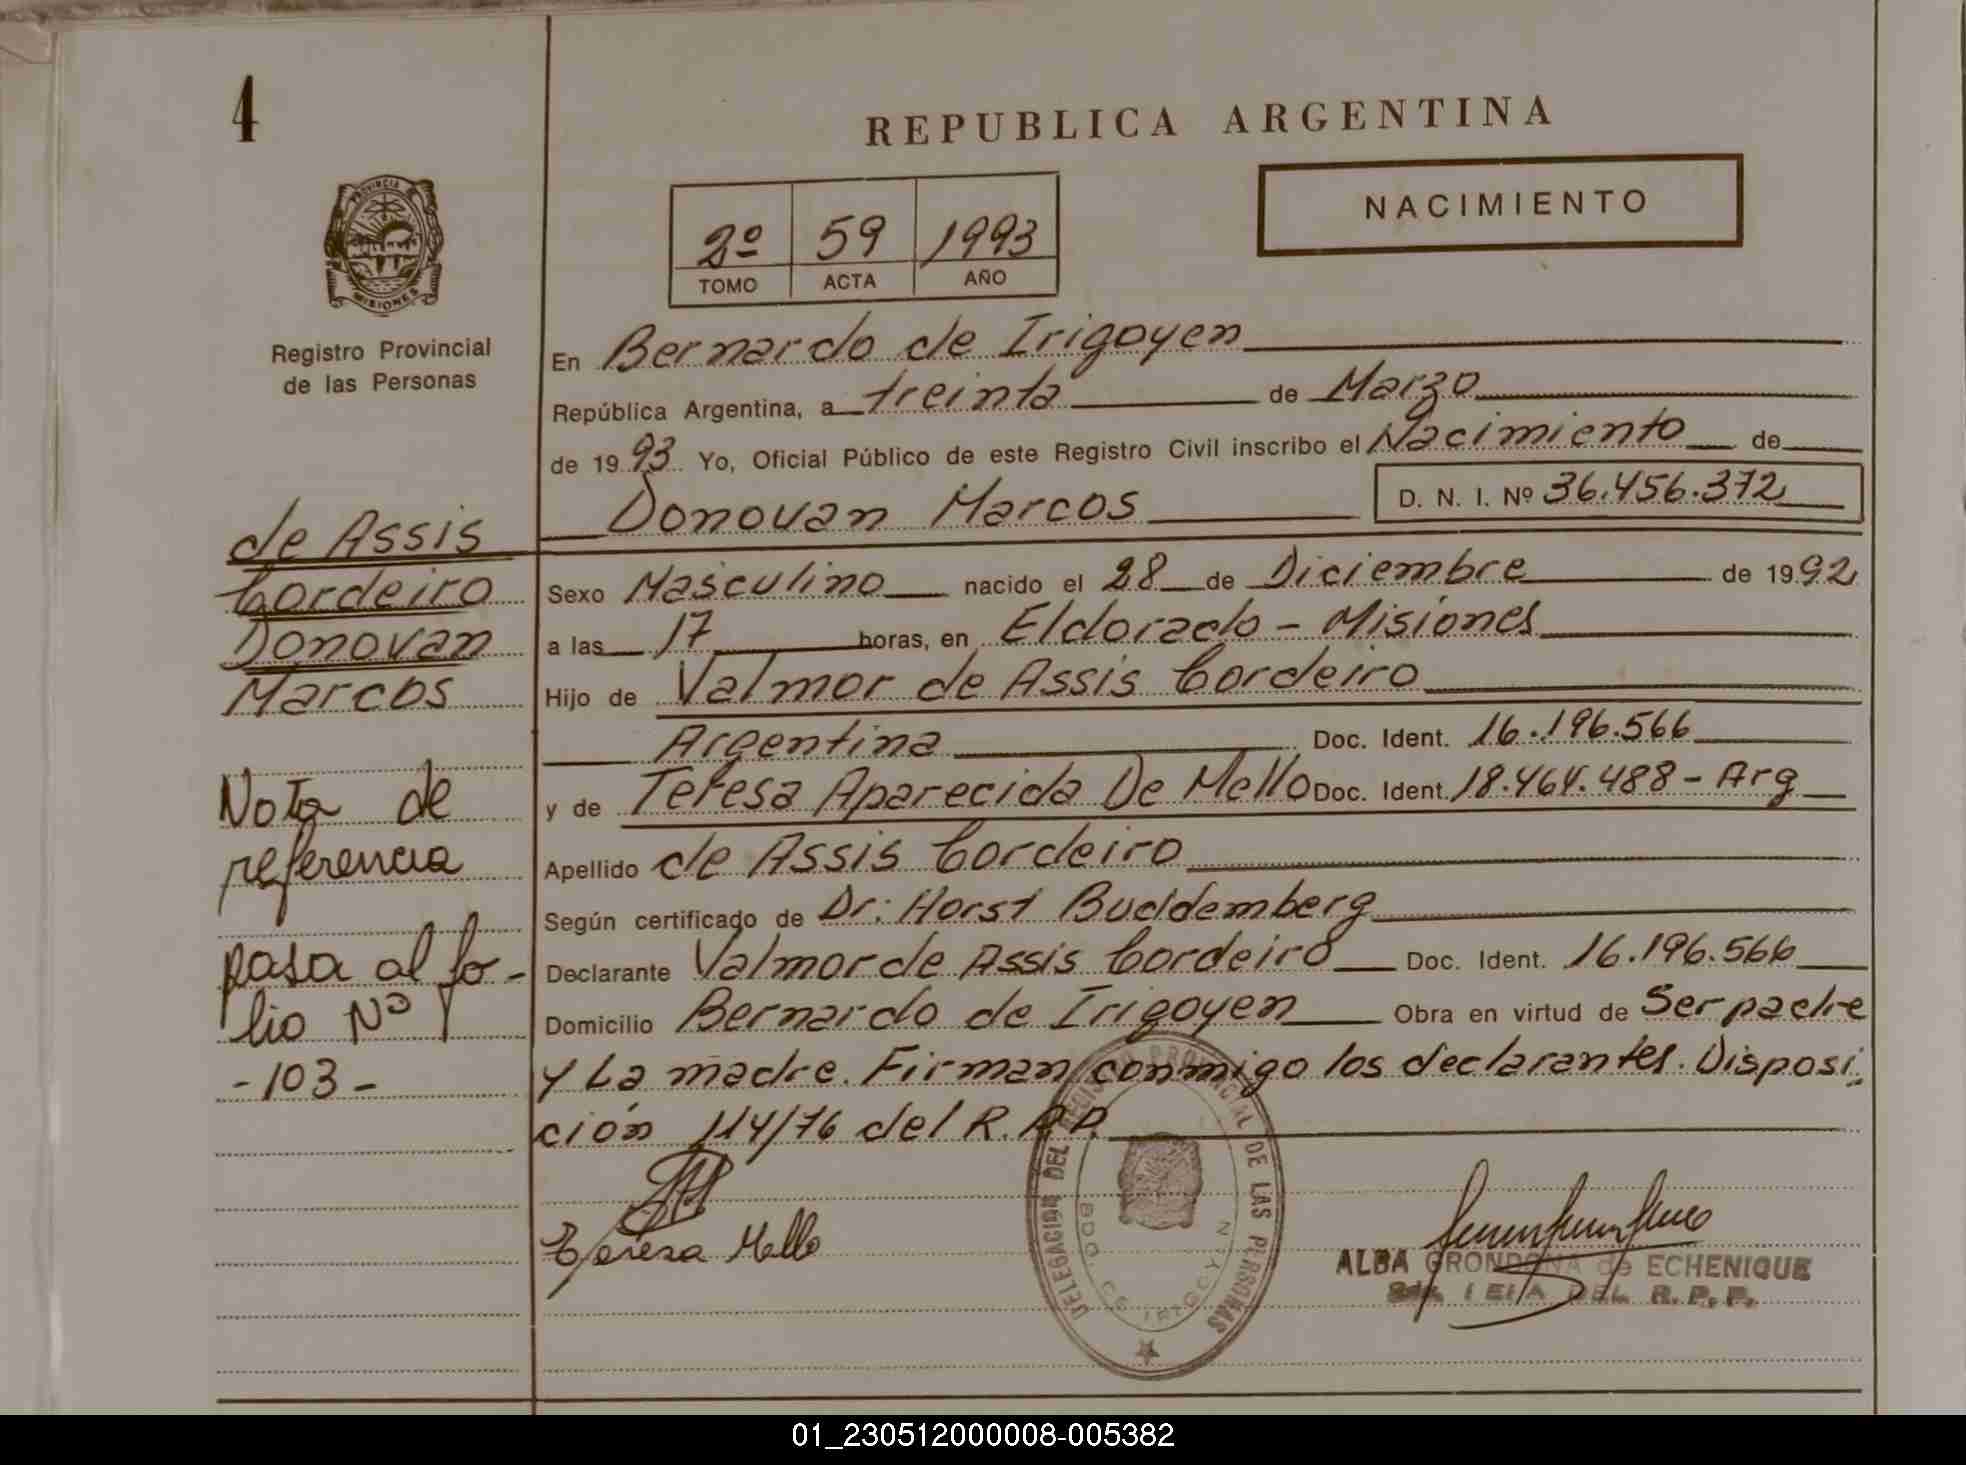 4
REPUBLICA ARGENTINA
PROVINCIA DE
MISIONES
NACIMIENTO
2º 59 1993
TOMO ACTA AÑO
Registro Provincial
de las Personas
En Bernardo de Irigoyen
República Argentina, a treinta de Marzo
de 19 93 Yo, Oficial Público de este Registro Civil inscribo el Nacimiento de
Donovan Marcos D. N. I. Nº 36.456.372
de Assis
Cordeiro
Donovan
Marcos
Sexo Masculino nacido el 28 de Diciembre de 1992
a las 17 horas, en Eldorado - Misiones
Hijo de Valmor de Assis Cordeiro
Argentina Doc. Ident. 16.196.566
y de Teresa Aparecida De Mello Doc. Ident. 18.464.488 - Arg
Apellido de Assis Cordeiro
Según certificado de Dr: Horst Buddemberg
Declarante Valmor de Assis Cordeiro Doc. Ident. 16.196.566
Domicilio Bernardo de Irigoyen Obra en virtud de Ser padre
y La madre. Firman conmigo los declarantes. Disposi
ción 114/76 del R.P.P.
Nota de
referencia
pasa al fo-
lio Nº
-103-
Teresa Mello
DELEGACION DEL REGISTRO PROVINCIAL DE LAS PERSONAS
BDO. DE IRIGOYEN
ALBA GRONDONA de ECHENIQUE
DEL R. P. P.
01_230512000008-005382